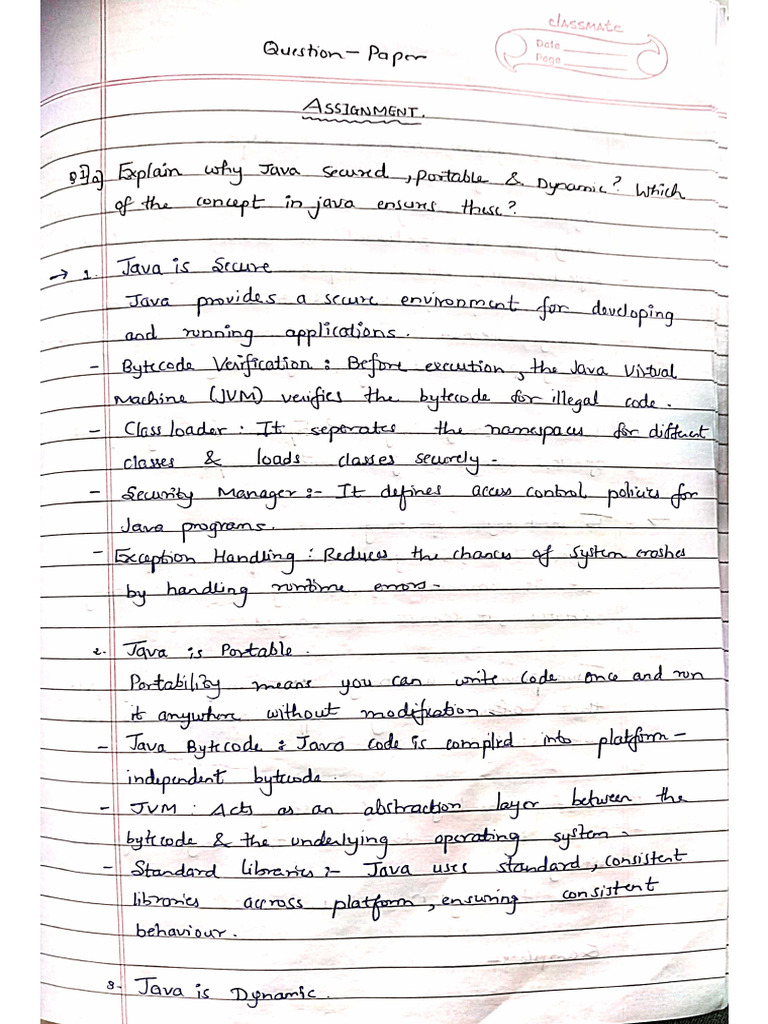 classmate
Date
Page
Question - Paper
ASSIGNMENT.
Explain why Java secured, portable & Dynamic? which
of the concept in java ensures these?
→ 1. Java is Secure
Java provides a secure environment for developing
and running applications.
- Bytecode Verification : Before execution, the Java Virtual
Machine (JVM) verifies the bytecode for illegal code.
- Class loader : It seperates the namespaces for different
classes & loads classes securely -
- Security Manager :- It defines access control policies for
Java programs.
- Exception Handling : Reduces the chances of system crashes
by handling runtime errors -
2. Java is Portable.
Portability means you can write code once and run
it anywhere without modification.
- Java Bytecode : Java code is compiled into platform -
independent bytecode.
- JVM : Acts as an abstraction layer between the
bytecode & the underlying operating system -
- Standard libraries :- Java uses standard, consistent
libraries accross platform, ensuring consistent
behaviour.
3. Java is Dynamic.